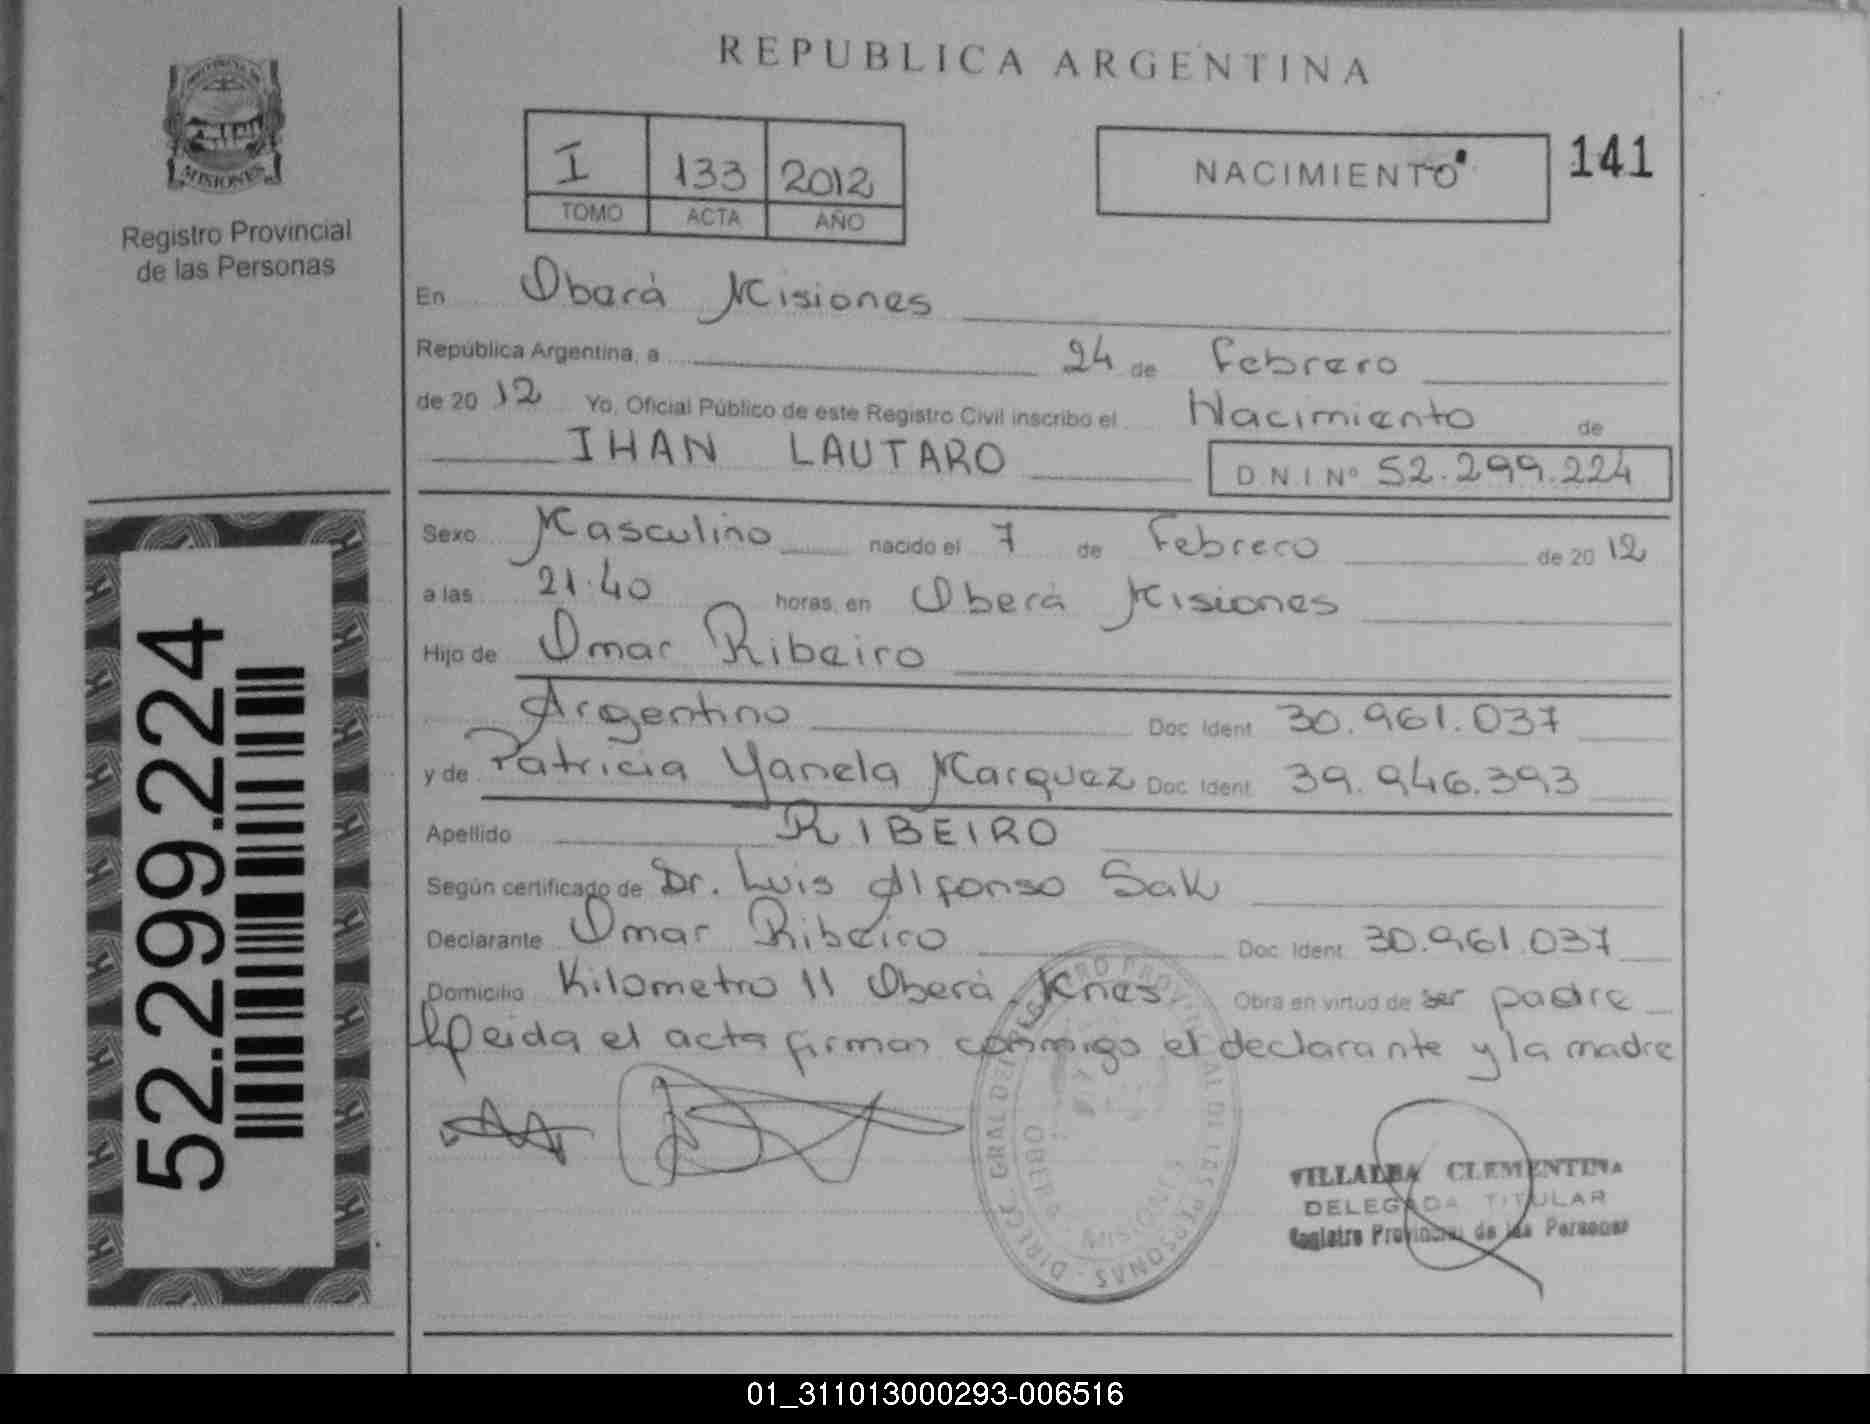 REPUBLICA ARGENTINA
MISIONES
Registro Provincial
de las Personas
I 133 2012
TOMO ACTA AÑO
NACIMIENTO
141
En Oberá Misiones
República Argentina, a 24 de Febrero
de 20 12 Yo, Oficial Público de este Registro Civil inscribo el Nacimiento de
IHAN LAUTARO
D.N.I Nº 52.299.224
Sexo Masculino nacido el 7 de Febrero de 20 12
a las 21.40 horas, en Oberá Misiones
Hijo de Omar Ribeiro
Argentino Doc. Ident. 30.961.037
y de Patricia Yanela Marquez Doc. Ident. 39.946.393
Apellido RIBEIRO
Según certificado de Dr. Luis Alfonso Sak
Declarante Omar Ribeiro Doc. Ident. 30.961.037
Domicilio Kilometro 11 Oberá Mnes Obra en virtud de ser padre
Leida el acta firman conmigo el declarante y la madre
DIRECC. GRAL DEL REGISTRO PROVINCIAL DE LAS PERSONAS
OBERA
MISIONES
VILLALBA CLEMENTINA
DELEGADA TITULAR
Registro Provincial de las Personas
52.299.224
01_311013000293-006516